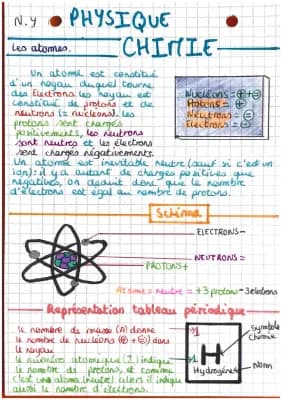 N.4 • PHYSIQUE •
Les atomes. CHIMIE
Un atome est constitué
d'un noyau duquel tourne
des Électrons. Les noyau est
constitué de protons et de
neutrons (= nucléons). Les
protons sont chargés
positivements, les neutrons
sont neutres et les électrons
sont chargés négativements.
Nucléons = ⊕ ⊖
Protons = ⊕
Neutrons = ⊖
Electrons = ⊖
Un atome est inévitable neutre (sauf si c'est un
ion): il y a autant de charges positives que
négatives, on deduit donc que le nombre
d'électrons est égal au nombre de protons.
Schéma
ELECTRONS -
NEUTRONS =
PROTONS +
Atome = neutre = +3 protons -3 électrons
Représentation tableau périodique
le nombre de masse (A) donne
le nombre de nucléons (⊕ + ⊖) dans
le noyau
le numéro atomique (Z) indique
le nombre de protons, et comme
c'est une atome (neutre) alors il indique
aussi le nombre d'électrons.
1
H
1
Hydrogène
Symbole
Chimie
Nom